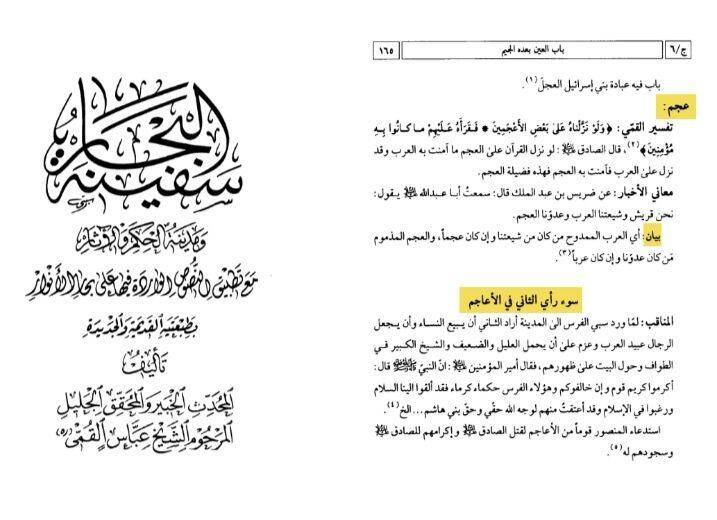 ج/٦
باب العين بعده الجيم
١٦٥
باب فيه عبادة بني إسرائيل العجل (١).
عجم:
تفسير القمّي: ﴿وَلَوْ نَزَّلْنَاهُ عَلىٰ بَعْضِ الأَعْجَمِينَ * فَقَرَأَهُ عَلَيْهِمْ مـا كـانُوا بِـهِ
مُؤْمِنِينَ﴾(٢)، قال الصادق ﷺ: لو نزل القرآن على العجم ما آمنت به العرب وقد
نزل على العرب فآمنت به العجم فهذه فضيلة العجم.
معاني الأخبار: عن ضريس بن عبد الملك قال: سمعتُ أبا عبدالله ﷺ يـقول:
نحن قريش وشيعتنا العرب وعدوّنا العجم.
بيان: أي العرب الممدوح من كان من شيعتنا وإن كان عجماً، والعجم المذموم
مَن كان عدوّنا وإن كان عرباً (٣).
سوء رأي الثاني في الأعاجم
المناقب: لمّا ورد سبي الفرس الى المدينة أراد الثاني أن يبيع النساء وأن يجعل
الرجال عبيد العرب وعزم على أن يحمل العليل والضعيف والشيخ الكبير في
الطواف وحول البيت على ظهورهم، فقال أمير المؤمنين ﷺ: انّ النبيّ ﷺ قال:
أكرموا كريم قوم وإن خالفوكم وهؤلاء الفرس حكماء كرماء فقد ألقوا الينا السلام
ورغبوا في الإسلام وقد أعتقتُ منهم لوجه الله حقّي وحقّ بني هاشم... الخ (٤).
استدعاء المنصور قوماً من الأعاجم لقتل الصادق ﷺ وإكرامهم للصادق ﷺ
وسجودهم له (٥).
سفينة البحار
ومدينة الحكم والآثار
مع تطبيق النصوص الواردة فيها على بحار الأنوار
بطبعتيه القديمة والجديدة
تأليف
المحدث الخبير والمحقق الجليل
المرحوم الشيخ عباس القمي (ره)